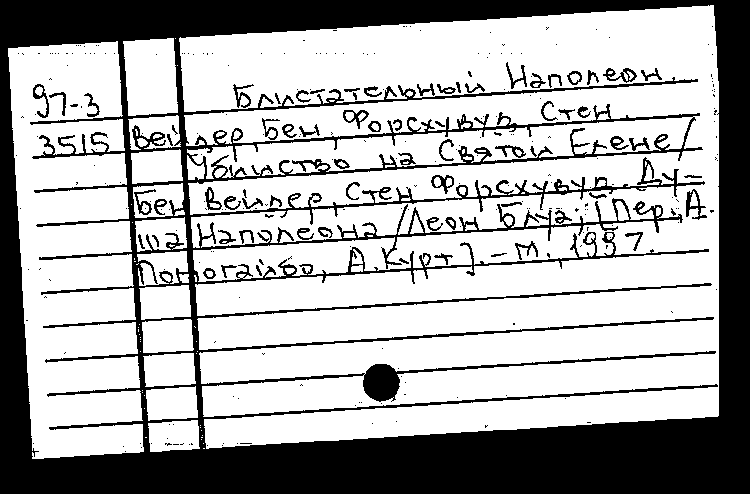 97-3 Блистательный Наполеон.
3515 Вейдер, Бен, Форсхувуд, Стен.
Убийство на Святой Елене/
Бен Вейдер, Стен Форсхувуд. Ду-
ша Наполеона/Леон Блуа; [Пер., А.
Помогайбо, А.Курт].-М., 1997.